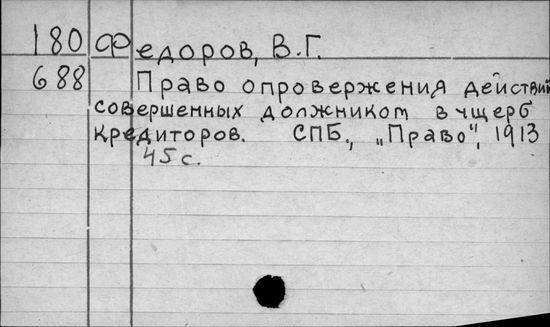 180 Федоров, В.Г.
688 Право опровержения действий
совершенных должником в ущерб
кредиторов. СПБ., „Право", 1913
45 с.